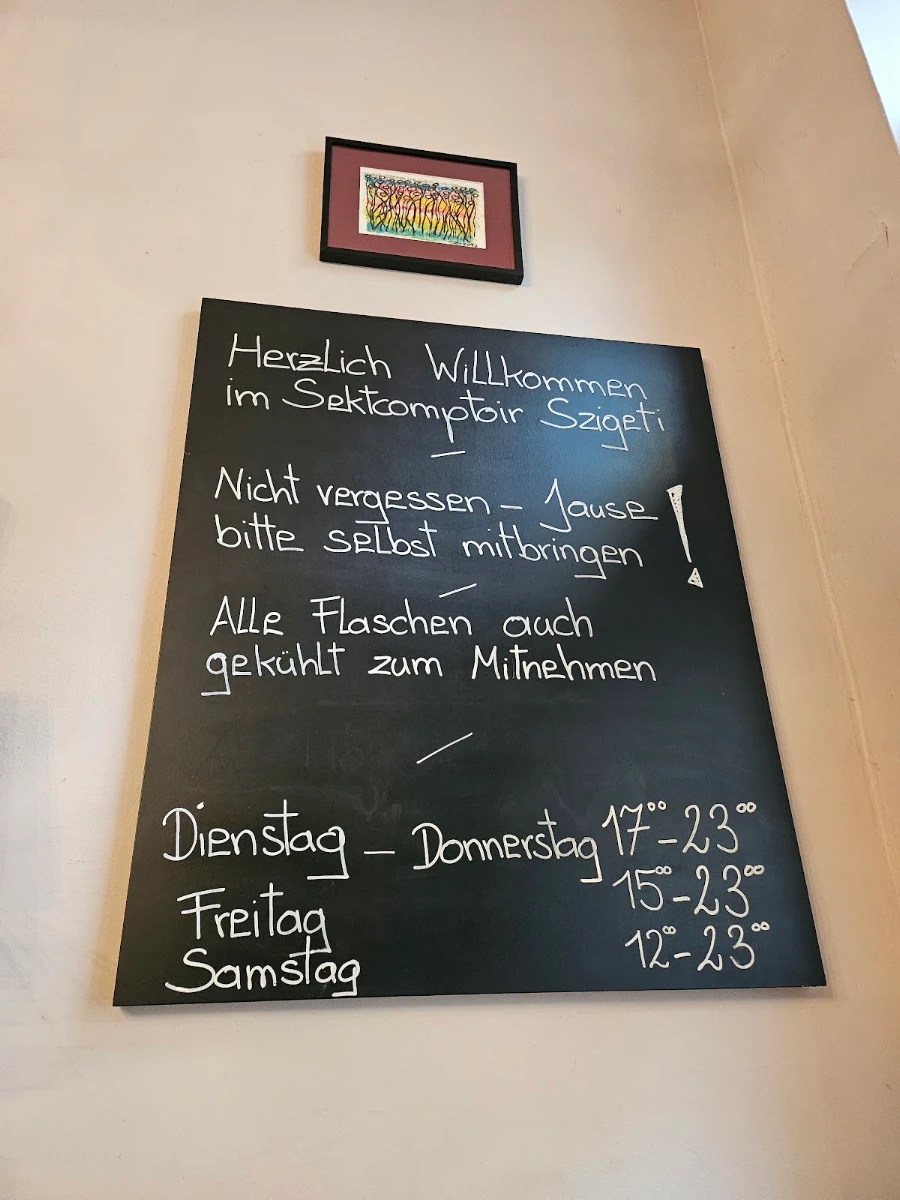 Herzlich Willkommen
im Sektcomptoir Szigeti
–
Nicht vergessen – Jause
bitte selbst mitbringen !
–
Alle Flaschen auch
gekühlt zum Mitnehmen
–
Dienstag – Donnerstag 17⁰⁰-23⁰⁰
Freitag 15⁰⁰-23⁰⁰
Samstag 12⁰⁰-23⁰⁰